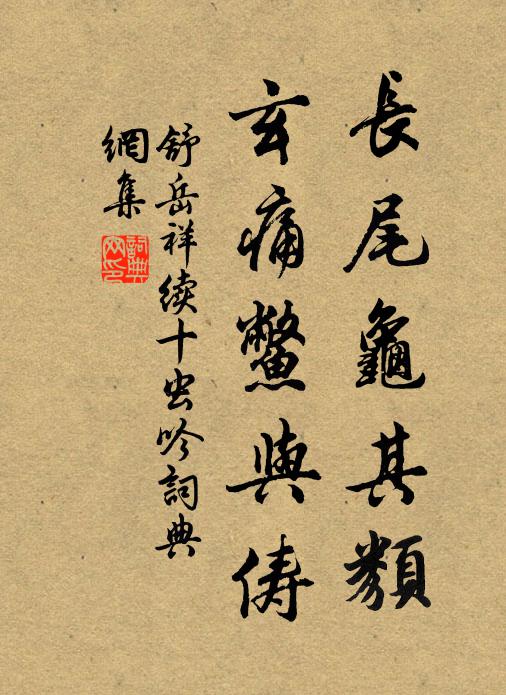 長尾龜其類
玄痛鱉與儔
舒岳祥續十虫吟詞典
網集
詞典
网印